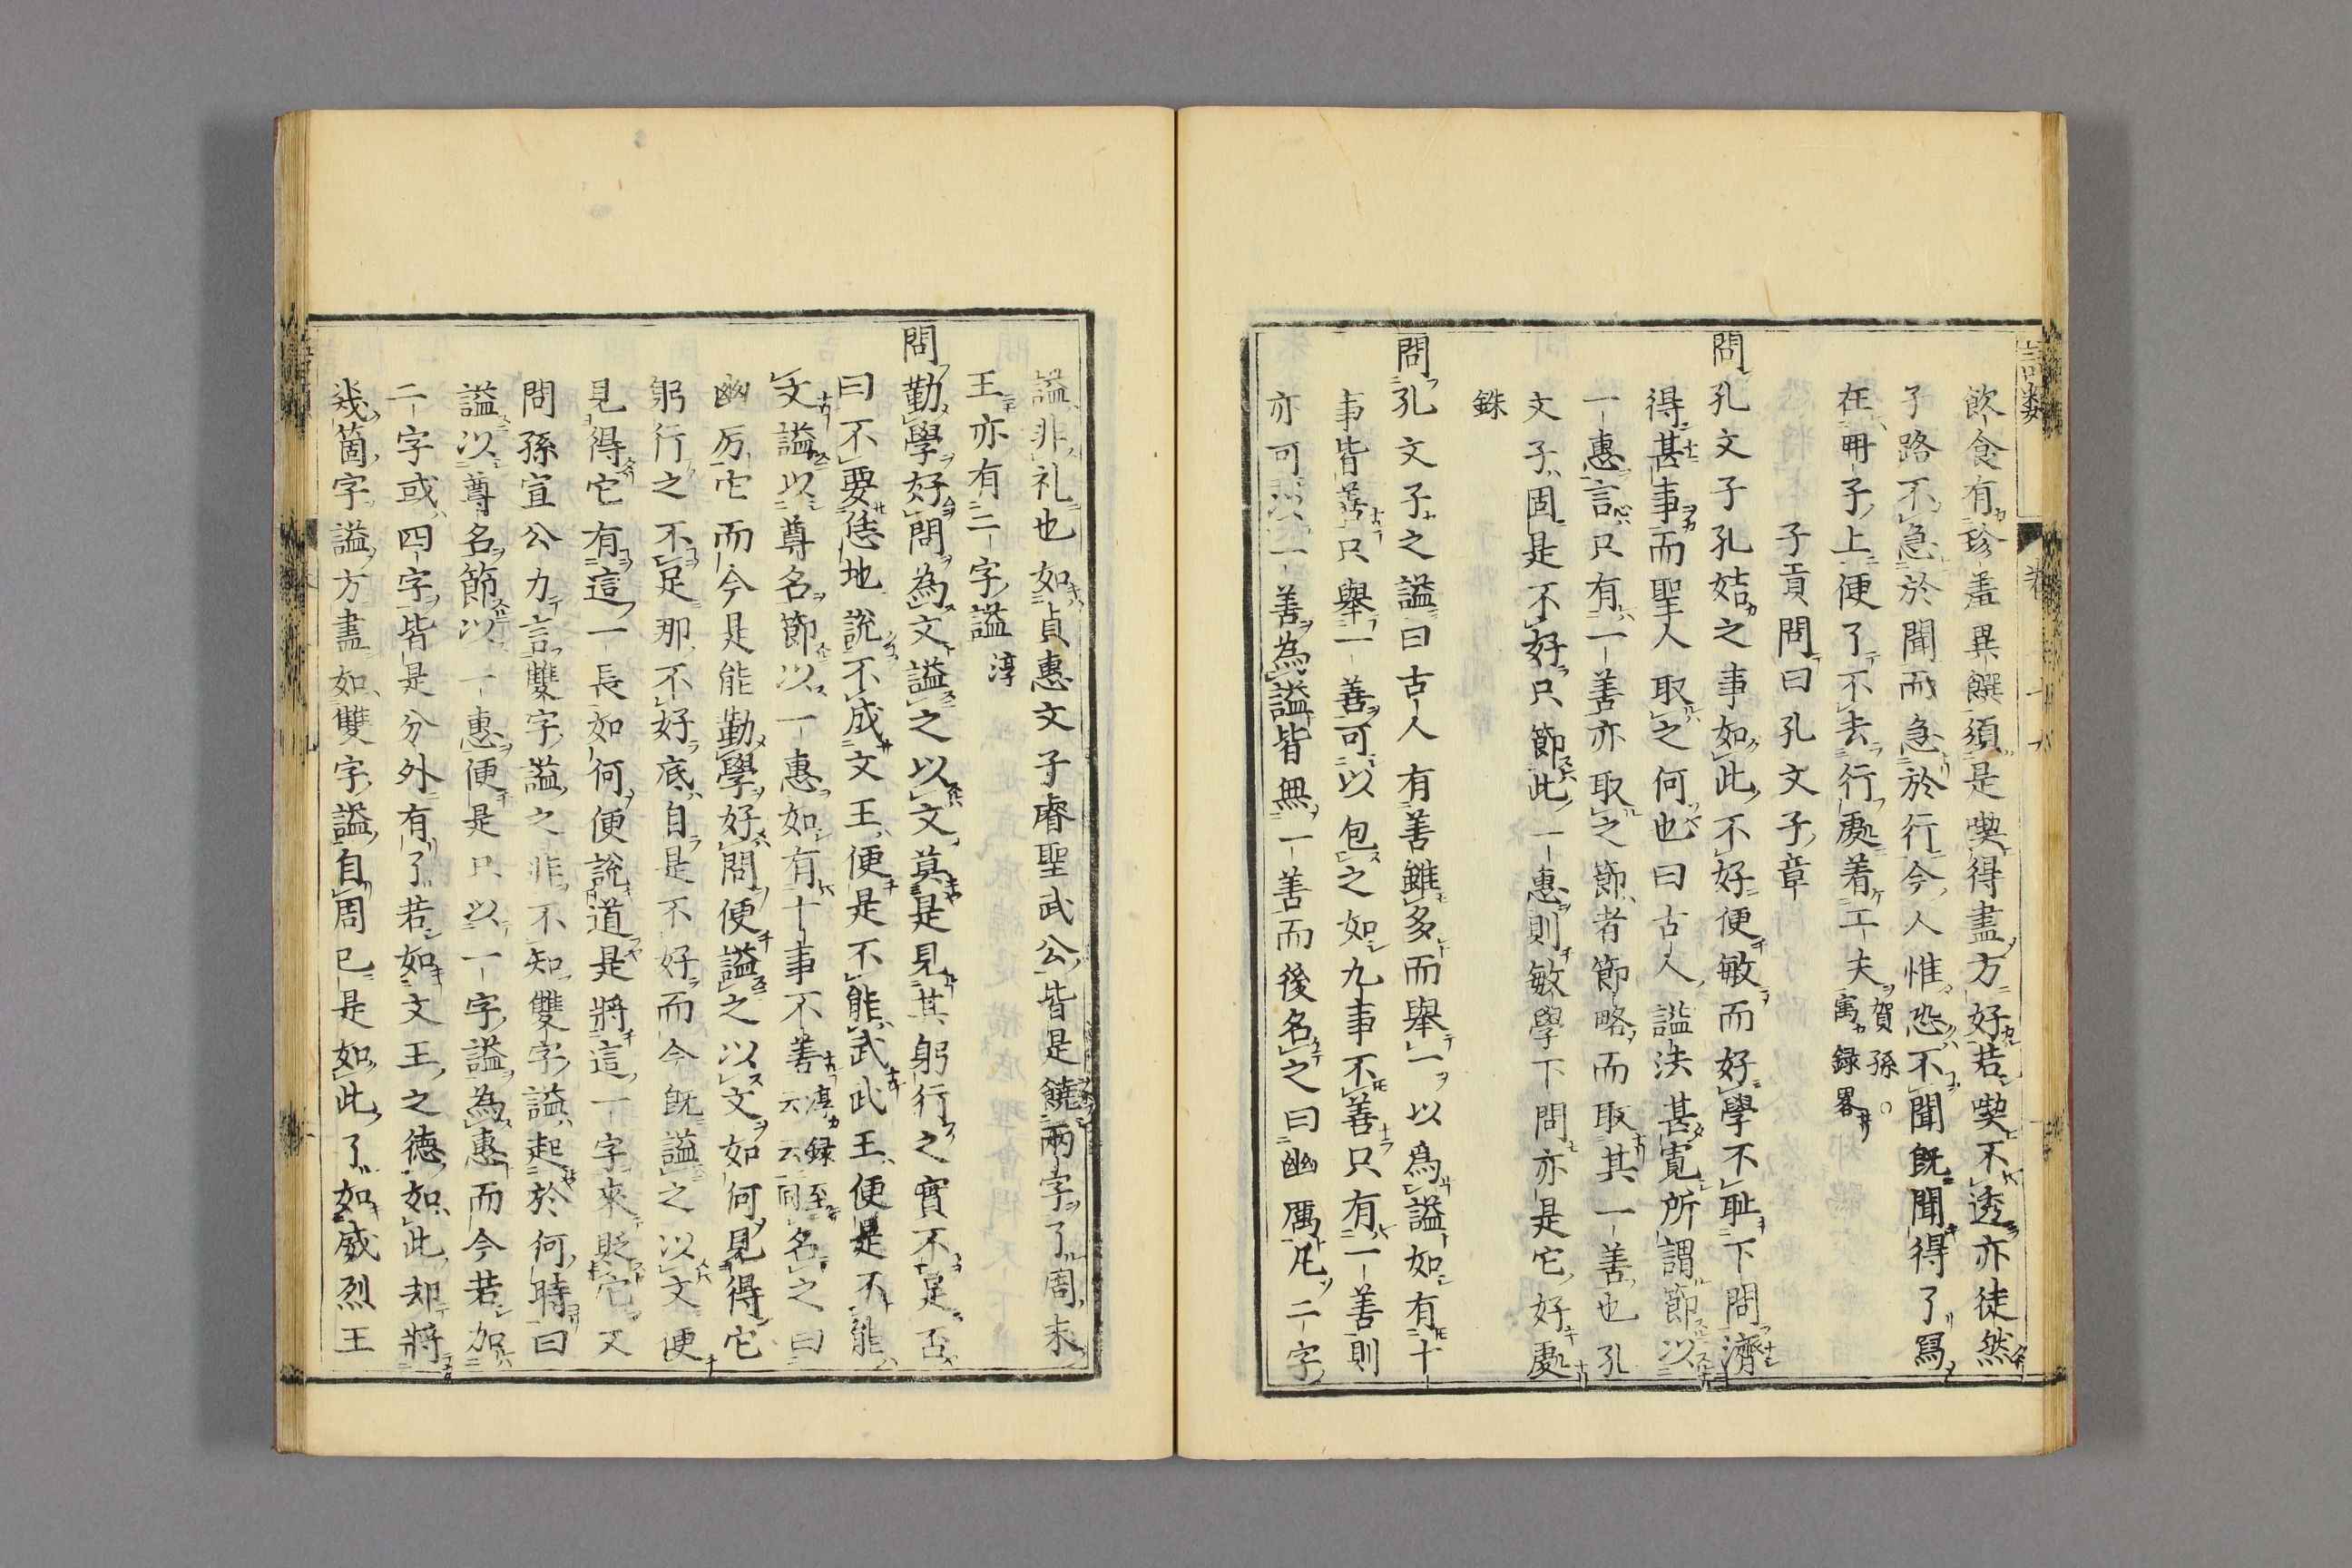 飲食有珍羞異饌須是喫得盡方好若喫不透亦徒然
子路不急於聞而急於行今人惟恐不聞既聞得了寫
在冊子上便了不去行處着工夫賀孫○寓録畧
子貢問曰孔文子章
問孔文子孔姞之事如此不好便敏而好學不耻下問濟
得甚事而聖人取之何也曰古人謚法甚寛所謂節以
一惠言只有一善亦取之節者節略而取其一善也孔
文子固是不好只節此一惠則敏學下問亦是它好處
銖
問孔文子之謚曰古人有善雖多而舉一以為謚如有十
事皆善只舉一善可以包之如九事不善只有一善則
亦可以一善為謚皆無一善而後名之曰幽厲凡二字
謚非礼也如貞惠文子睿聖武公皆是饒兩字了周末
王亦有二字謚淳
問勤學好問為文謚之以文莫是見其躬行之實不足否
曰不要恁地說不成文王便是不能武武王便是不能
文謚以尊名節以一惠如有十事不善淳録云云至同名之曰
幽厉它而今是能勤學好問便謚之以文如何見得它
躬行之不足那不好底自是不好而今既謚之以文便
見得它有這一長如何便說道是將這一字來貶它又
問孫宣公力言雙字謚之非不知雙字謚起於何時曰
謚以尊名節以一惠便是只以一字謚為惠而今若加
二字或四字皆是分外有了若如文王之德如此却將
幾箇字謚方盡如雙字謚自周已是如此了如威烈王